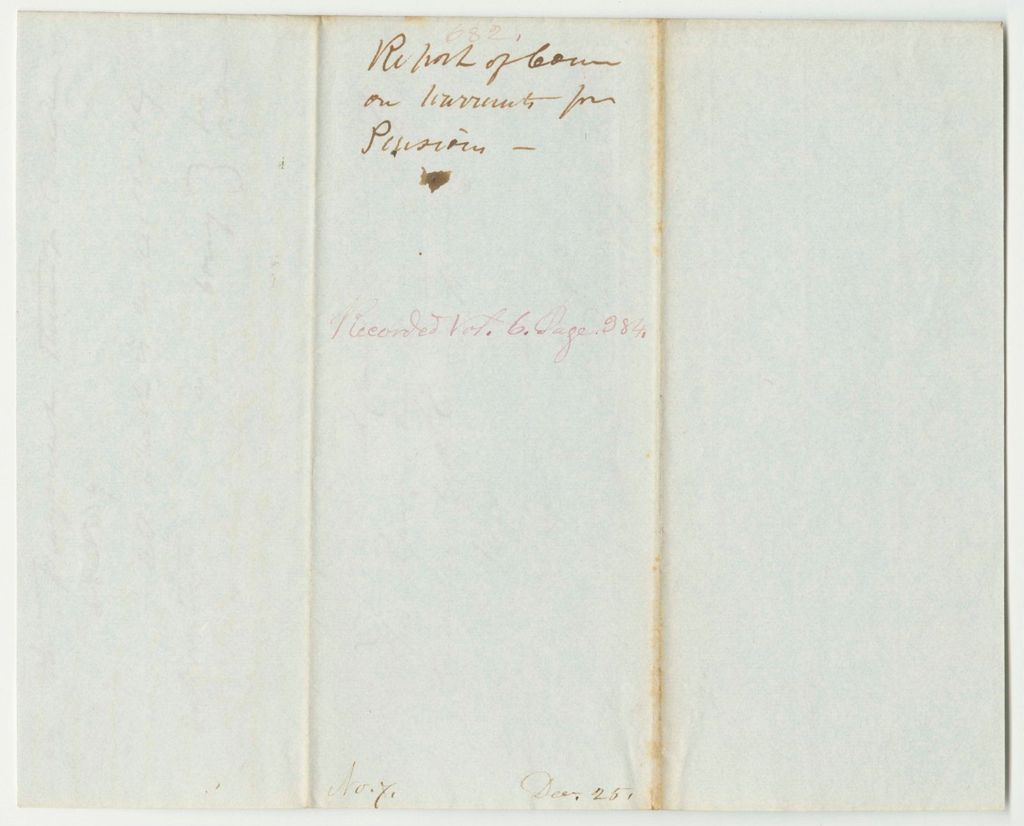 682.
Report of Com
on Warrants for
Pensions —
Recorded Vol. 6. Page. 984.
No. 7.
Dec. 25.